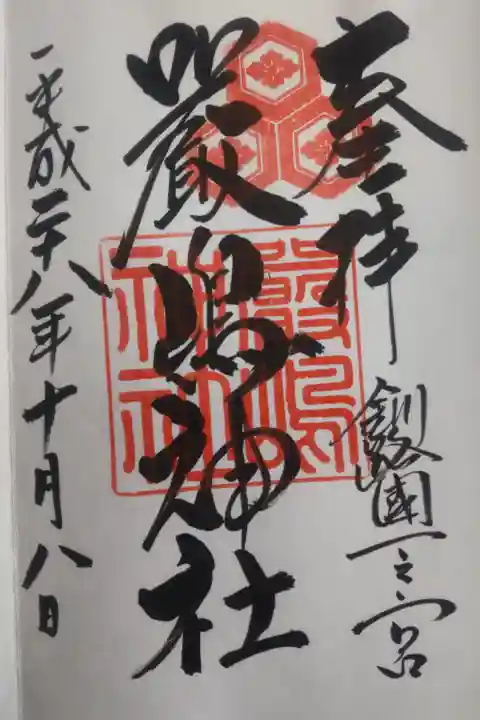 奉拝
釧路國一之宮
嚴島神社
嚴嶋神社
平成二十八年十月八日